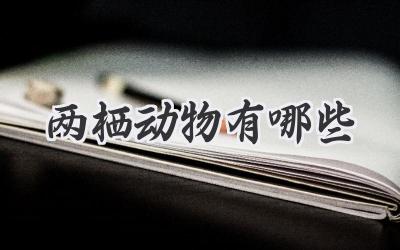 两栖动物有哪些